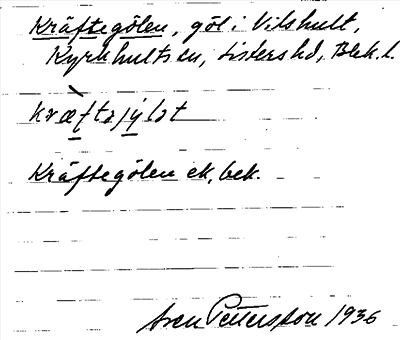 Kräftegölen, göl i Vilshult,
Kyrkhults sn, Listers hd, Blek. l.
kræ̀ftəjýlət
Kräftegölen ek, bek.
Sven Pettersson 1936